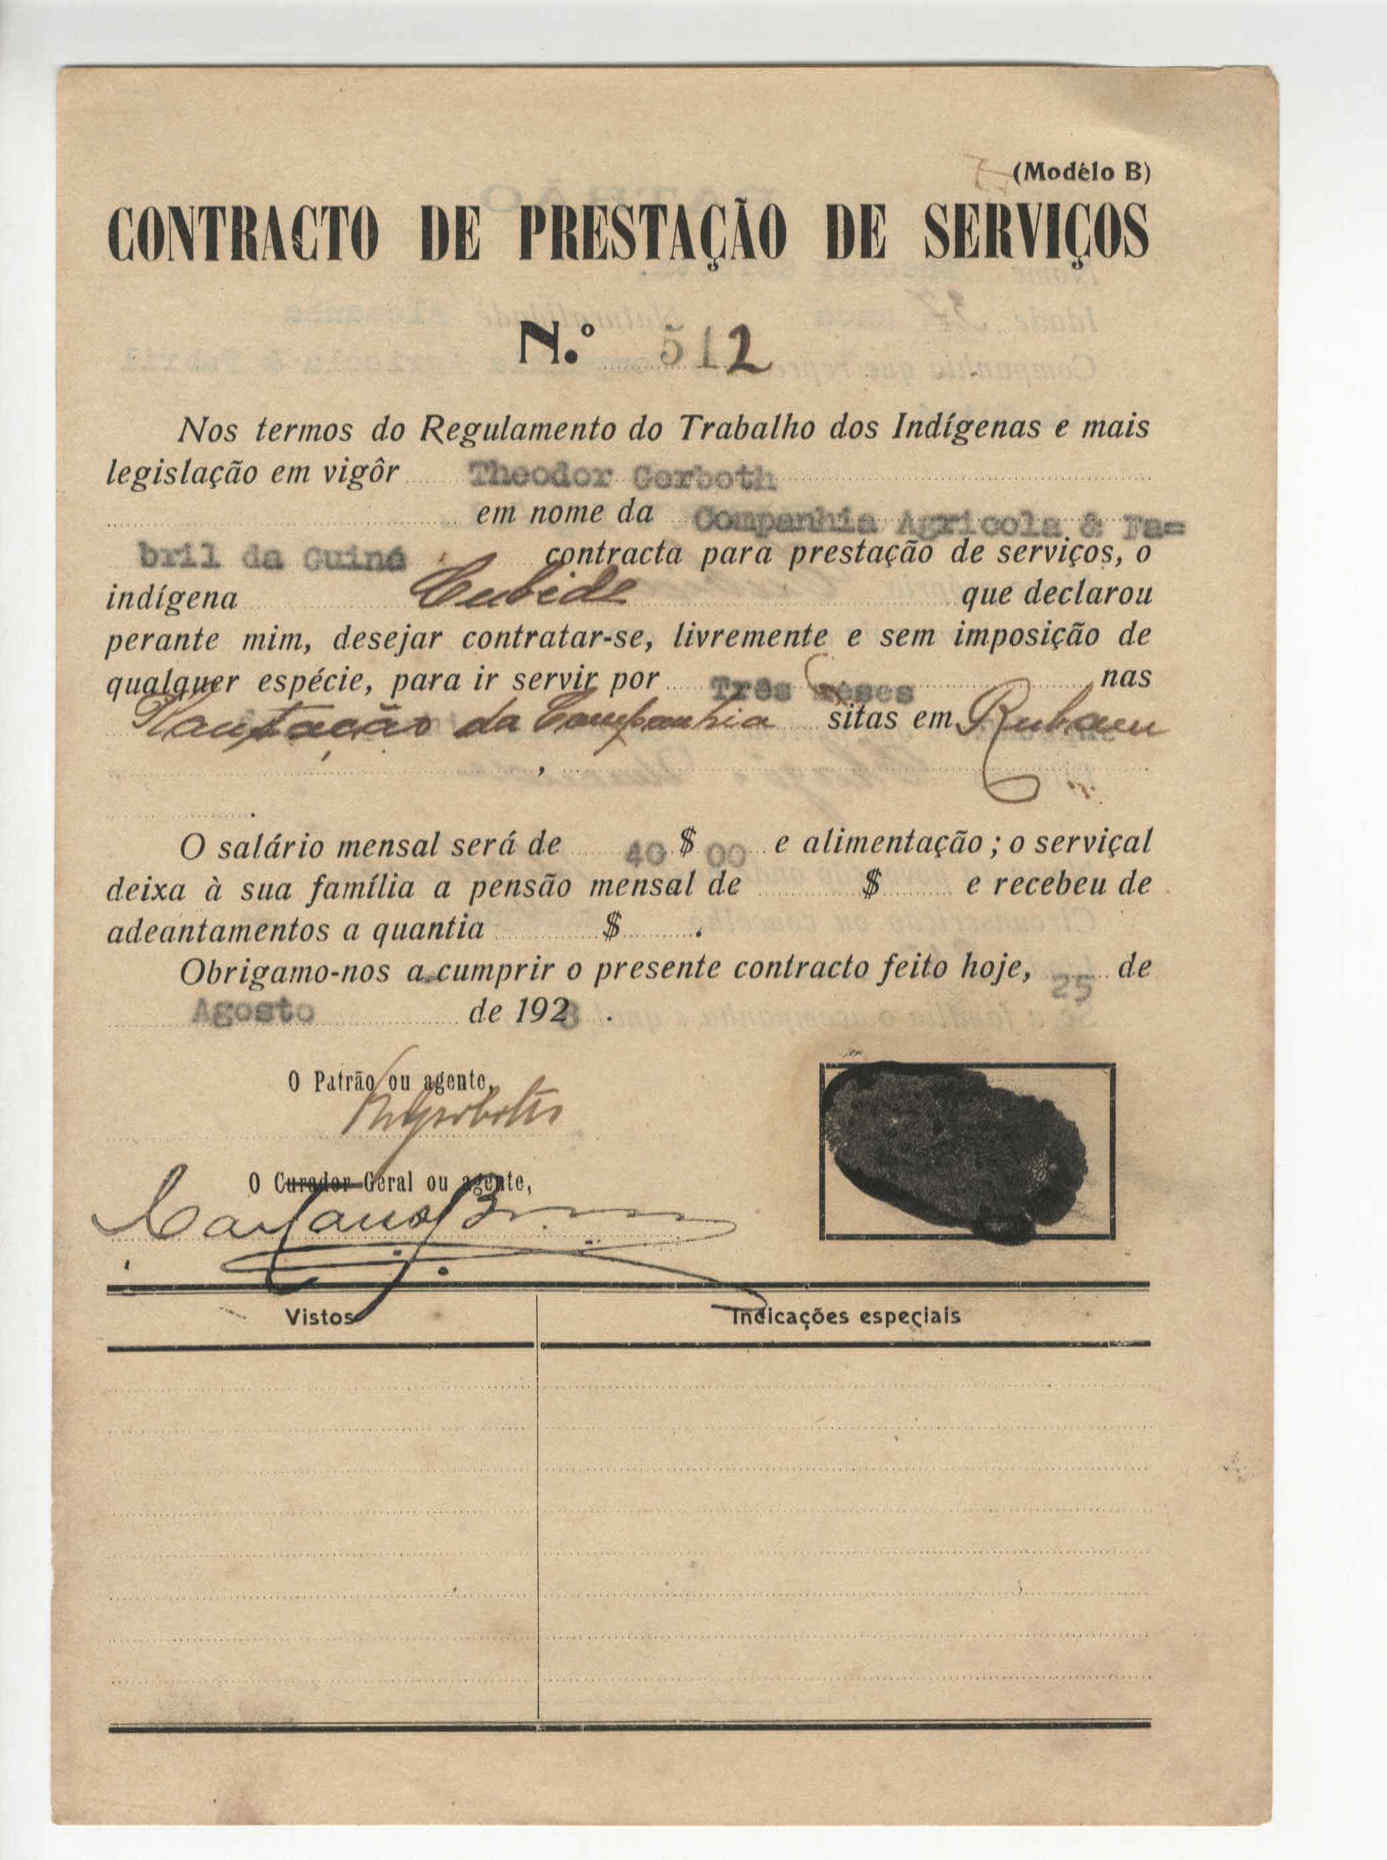 (Modêlo B)
CONTRACTO DE PRESTAÇÃO DE SERVIÇOS
N.º 512
Nos termos do Regulamento do Trabalho dos Indígenas e mais
legislação em vigôr Theodor Gerboth
em nome da Companhia Agricola & Fa=
bril da Guiné contracta para prestação de serviços, o
indígena Cubide que declarou
perante mim, desejar contratar-se, livremente e sem imposição de
qualquer espécie, para ir servir por Três meses nas
Plantação da Companhia sitas em Rubane
O salário mensal será de 40 $ 00 e alimentação; o serviçal
deixa à sua família a pensão mensal de $ e recebeu de
adeantamentos a quantia $ .
Obrigamo-nos a cumprir o presente contracto feito hoje, 25 de
Agosto de 1928 .
O Patrão ou agente,
O Curador Geral ou agente,
Vistos
Indicações especiais